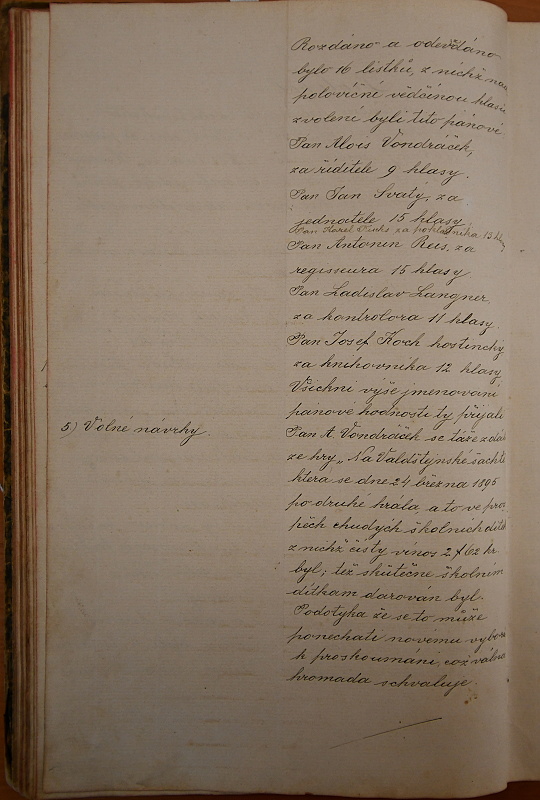 Rozdáno a odevzdáno
bylo 16 lístků, z nichž nad
poloviční většinou hlasů
zvoleni byli tito pánové
Pan Alois Vondráček,
za řiditele 9 hlasy.
Pan Jan Svatý, za
jednatele 15 hlasy
Pan Karel za pokladníka 13 hlasy
Pan Antonín Reis, za
regisseura 15 hlasy
Pan Ladislav Langner
za kontrolora 11 hlasy.
Pan Josef Koch hostinský
za knihovníka 12 hlasy
Všichni výše jmenovaní
pánové hodnosti ty přijali
5) Volné návrhy.
Pan A. Vondráček se táže zdali
ze hry „Na Valdštýnské šachtě
která se dne 24 března 1895
po druhé hrála a to ve pros
pěch chudých školních dítek
z nichž čistý vínos 2 f 62 kr
byl; též skutečne školním
dítkám darován byl.
Podotyka že se to může
ponechati novému výboru
k proskoumání, což valná
hromada schvaluje.